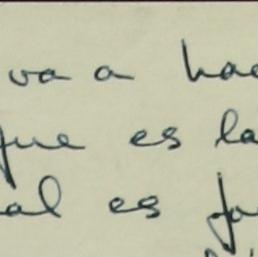 va a hac
que es la
al es